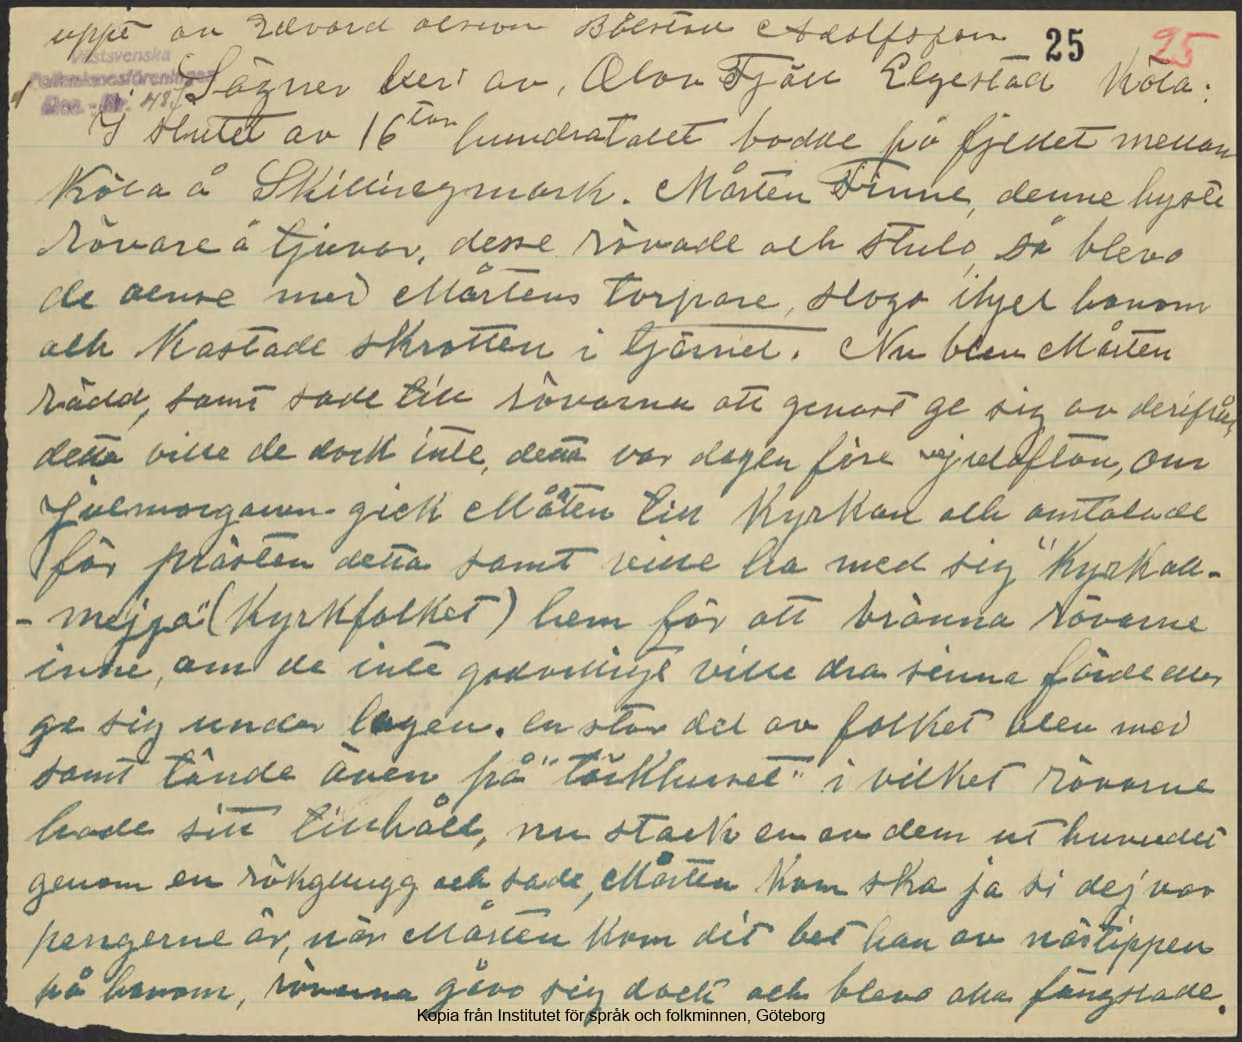 uppt av Edvard Olsson Bålstad Adolfsfors 25 25
Västsvenska
Folkminnesföreningen
Acc.-Nr. 487
Sägner ber. av, Olov Tjäll Elgestad Köla.
I slutet av 16 ton hundratalet bodde på fjellet mellan
Köla å Skillingmark. Mårten Finne, denne hyste
rövare å tjuvar, desse rövade och stulo, så blevo
de oense med Mårtens torpare, slogo ihjel honom
och kastade skrotten i tjärnet. Nu blev Mårten
rädd, samt sade till rövarna att genast ge sig av derifrån,
detta ville de dock inte, detta var dagen före julafton, om
Julmorgonen gick Måten till kyrkan och omtalade
för prästen detta samt ville ha med sig "Kyrkall-
- mejja" (Kyrkfolket) hem för att bränna rövarne
inne, om de inte godvilligt ville dra sinna färde eller
ge sig under lagen. en stor del av folket blev med
samt tände även på "törkhuset" i vilket rövarne
hade sitt tillhåll, nu stack en av dem ut huvudet
genom en rökglugg och sade, Mårten kom ska ja si dej var
pengerne är, när Mårten kom dit bet han av nästippen
på honom, rövarna gåvo sig dock och blevo alla fängslade.
Kopia från Institutet för språk och folkminnen, Göteborg